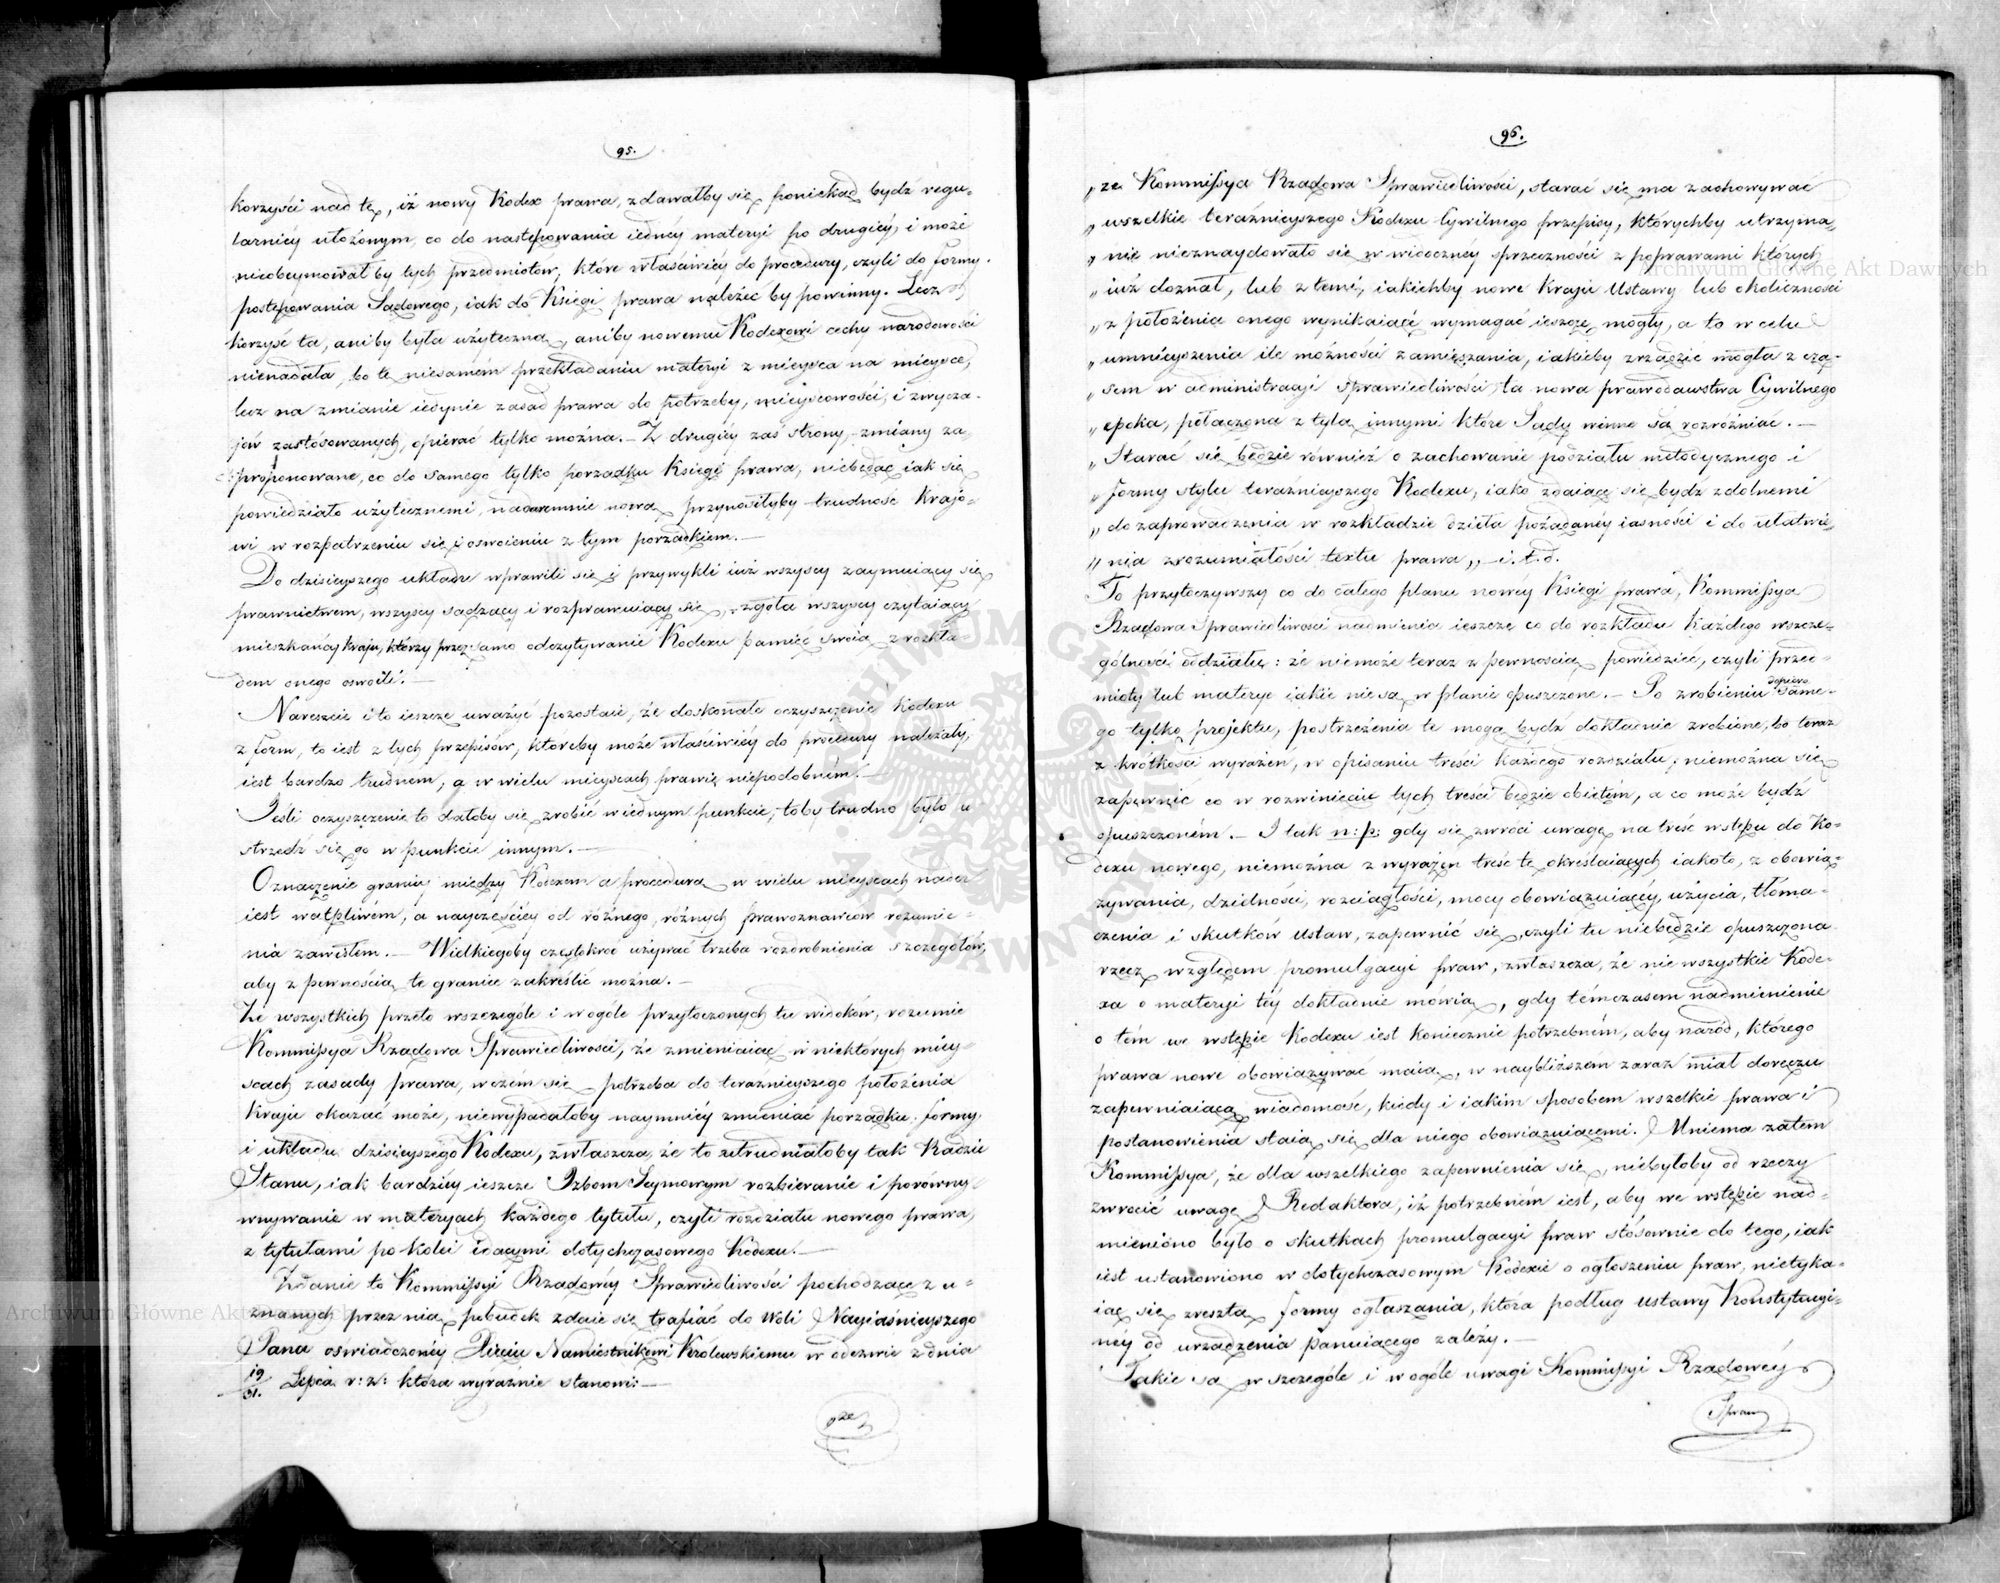 95.
korzyści nad tę, iż nowy Kodex prawa, zdawałby się poniekąd bydź regu-
larniéy ułożonym, co do następowania iednéy materyi po drugiéy, i może
nieobeymował by tych przedmiotów, które właściwiéy do procedury, czyli do formy
postępowania Sądowego, iak do Księgi prawa należéć by powinny. Lecz
korzyść ta, aniby była użyteczną, aniby nowemu Kodexowi cechy narodowości
nienadała, bo tę niesamém przekładaniu materyi z mieysca na mieysce,
lecz na zmianie iedynie zasad prawa do potrzeby, mieyscowości, i zwycza-
jów zastósowanych, opierać tylko można. — Z drugiéy zaś strony, zmiany za-
proponowane, co do samego tylko porządku Księgi prawa, niebędąc iak się
powiedziało użytecznemi, nadaremnie nową przynosiłyby trudność Krajo-
wi w rozpatrzeniu się i oswoieniu z tym porządkiem. —
Do dzisieyszego układu wprawili się i przywykli iuż wszyscy zaymuiący się
prawnictwem, wszyscy sądzący i rozprawuiący się, zgoła wszyscy czytaiący
mieszkańcy kraju, którzy przez samo odczytywanie Kodexu pamięć swoią z rozkła
dem onego oswoili. —
Nareszcie i to ieszcze uważyć pozostaie, że doskonałe oczyszczenie Kodexu
z form, to iest z tych przepisów, któreby może właściwiéy do procedury należały,
iest bardzo trudném, a w wielu mieyscach prawie niepodobném. —
Jeśli oczyszczenie to dałoby się zrobić w iednym punkcie, toby trudno było u
strzedz się go w punkcie innym. —
Oznaczenie granicy między Kodexem a procedurą w wielu mieyscach nader
iest wątpliwém, a nayczęściéy od różnego, różnych prawoznawców rozumie-
nia zawisłem. — Wielkiegoby częstokroć używać trzeba rozdrobnienia szczegółów,
aby z pewnością te granice zakréślić można. —
Ze wszystkich przeto wszczególe i w ogóle przytoczonych tu widoków, rozumie
Kommissya Rządowa Sprawiedliwości, że zmieniaiąc w niektórych miey-
scach zasady prawa, w czém się potrzeba do teraźnieyszego położenia
Kraju okazać może, niewypadałoby naymniéy zmieniać porządku, formy
i układu dzisieyszego Kodexu, zwłaszcza, że to utrudniałoby tak Radzie
Stanu, iak bardziéy ieszcze Izbom Seymowym rozbieranie i porówny-
wnywanie w materyach każdego tytułu, czyli rozdziału nowego prawa,
z tytułami po kolei idącymi dotychczasowego Kodexu. —
Zdanie to Kommissyi Rządowéy Sprawiedliwości pochodzące z u-
znanych przez nią pobudek zdaie się trafiać do Woli Nayiaśnieyszego
Pana oświadczonéy Xięciu Namiestnikowi Królewskiemu w odezwie z dnia
19/31. Lipca r: z: która wyraźnie stanowi: —
„że
96.
„że Kommissya Rządowa Sprawiedliwości, starać się ma zachowywać
„wszelkie teraźnieyszego Kodexu Cywilnego przepisy, którychby utrzyma-
„nie nieznaydowało się w widocznéy sprzeczności z poprawami których
„iuż doznał, lub z temi, iakichby nowe Kraju Ustawy lub okoliczności
„z położenia onego wynikaiące wymagać ieszcze mogły, a to w celu
„umnieyszenia ile możności zamięszania, iakieby zrządzić mogła z cza-
„sem w administracyi Sprawiedliwości, ta nowa prawodawstwa Cywilnego
„epoka, połączona z tylą innymi które Sądy winne są rozróżniać. —
„Starać się będzie również o zachowanie podziału metodycznego i
„formy stylu teraźnieyszego Kodexu, iako zdaiące się bydź zdolnemi
„do zaprowadzenia w rozkładzie dzieła pożądanéy iasności i do ułatwie-
„nia zrozumiałości textu prawa„ — i. t. d.
To przytoczywszy co do całego planu nowéy Księgi prawa, Kommissya
Rządowa Sprawiedliwości nadmienia ieszcze co do rozkładu każdego wszcze-
gólności oddziału: że niemoże teraz z pewnością powiedziéć, czyli przed-
mioty lub materye iakie nie są w planie opuszczone. — Po zrobieniu dopiero same-
go tylko projektu, postrzeżenia te mogą bydź dokładnie zrobione, bo teraz
z krótkości wyrażeń, w opisaniu treści każdego rozdziału, niemożna się
zapewnić co w rozwinięciu tych treści będzie obiętém, a co może bydź
opuszczoném. — I tak n: p: gdy się zwróci uwagę na treść wstępu do Ko-
dexu nowego, niemożna z wyrażeń treść tę określaiących iakoto, z obowią-
zywania, dzielności, rozciągłości, mocy obowiązuiącéy, użycia, tłóma-
czenia i skutków Ustaw, zapewnić się, czyli tu niebędzie opuszczona
rzecz względem promulgacyi praw, zwłaszcza, że nie wszystkie Kode-
xa o materyi téy dokładnie mówią, gdy témczasem nadmienienie
o tém we wstępie Kodexu iest koniecznie potrzebném, aby naród, którego
prawa nowe obowiązywać maią, w naybliższem zaraz miał doręczu
zapewniaiącą wiadomość, kiedy i iakim sposobem wszelkie prawa i
postanowienia staią się dla niego obowiązuiącemi. Mniema zatem
Kommissya, że dla wszelkiego zapewnienia się, niebyłoby od rzeczy
zwrócić uwagę Redaktora, iż potrzebném iest, aby we wstępie nad-
mienióno było o skutkach promulgacyi praw stósownie do tego, iak
iest ustanowiono w dotychczasowym Kodexie o ogłoszeniu praw, nietyka-
iąc się zresztą formy ogłaszania, która podług Ustawy Konstytucyi-
néy od urządzenia panuiącego zależy. —
Takie są w szczególe i w ogóle uwagi Kommissyi Rządowéy
Spraw
Archiwum Główne Akt Dawnych
Archiwum Główne Akt Dawnych